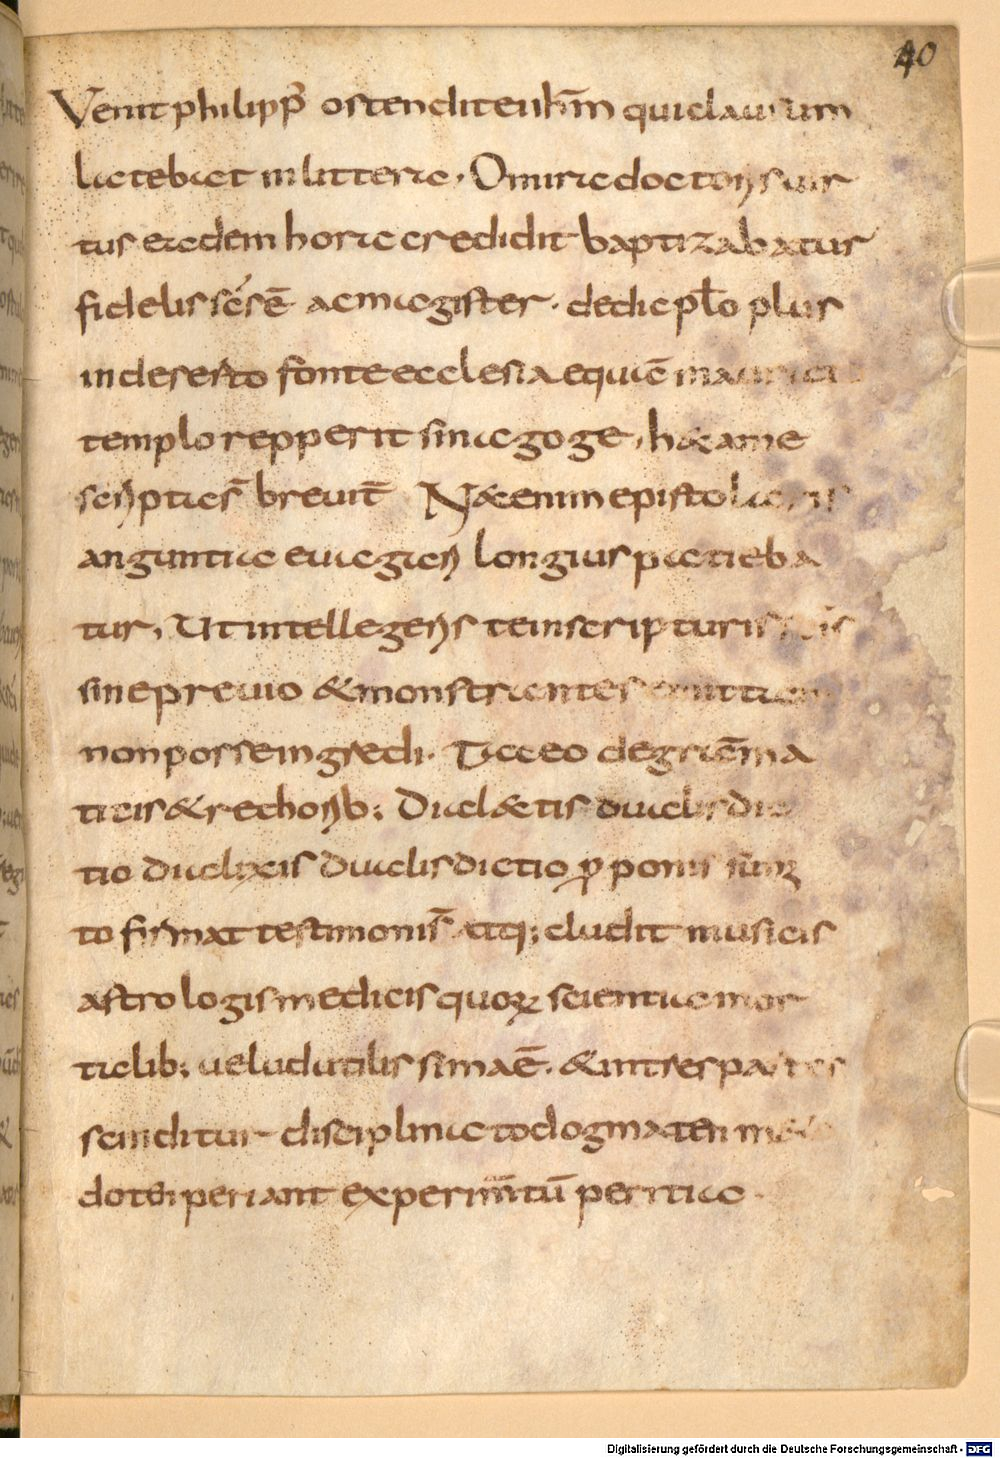 40
Venit philipp' ostendit ei ihm̄ qui clausum
latebat in littera. O mira doctor suis
tus eadem hora credidit baptizabatur
fidelis scs ē ac magister. dedic plo plus
in deserto fonte ecclesia equā
templo repperit sinagoge, h&ame
scriptas breuit̄ N&enim epistola
anguntiae euagari longius patieba
tur, Ut intellegeris te in scripturis
sine preuio & monstrantes emittam
non posse ingredi. Taceo de gramma
ticis & rethorib; dial&tis
tio dialixeis dialis dictio ꝓponis
to firmat testimoniis̄ atq; cludit musicis
astrologis medicis quoꝝ scientiae mor
talib; uel utilissima ē. & in tres partes
scinditur disciplinae to dogma ten m&
doten periant experim̄tū peritiae.
Digitalisierung gefördert durch die Deutsche Forschungsgemeinschaft - DFG